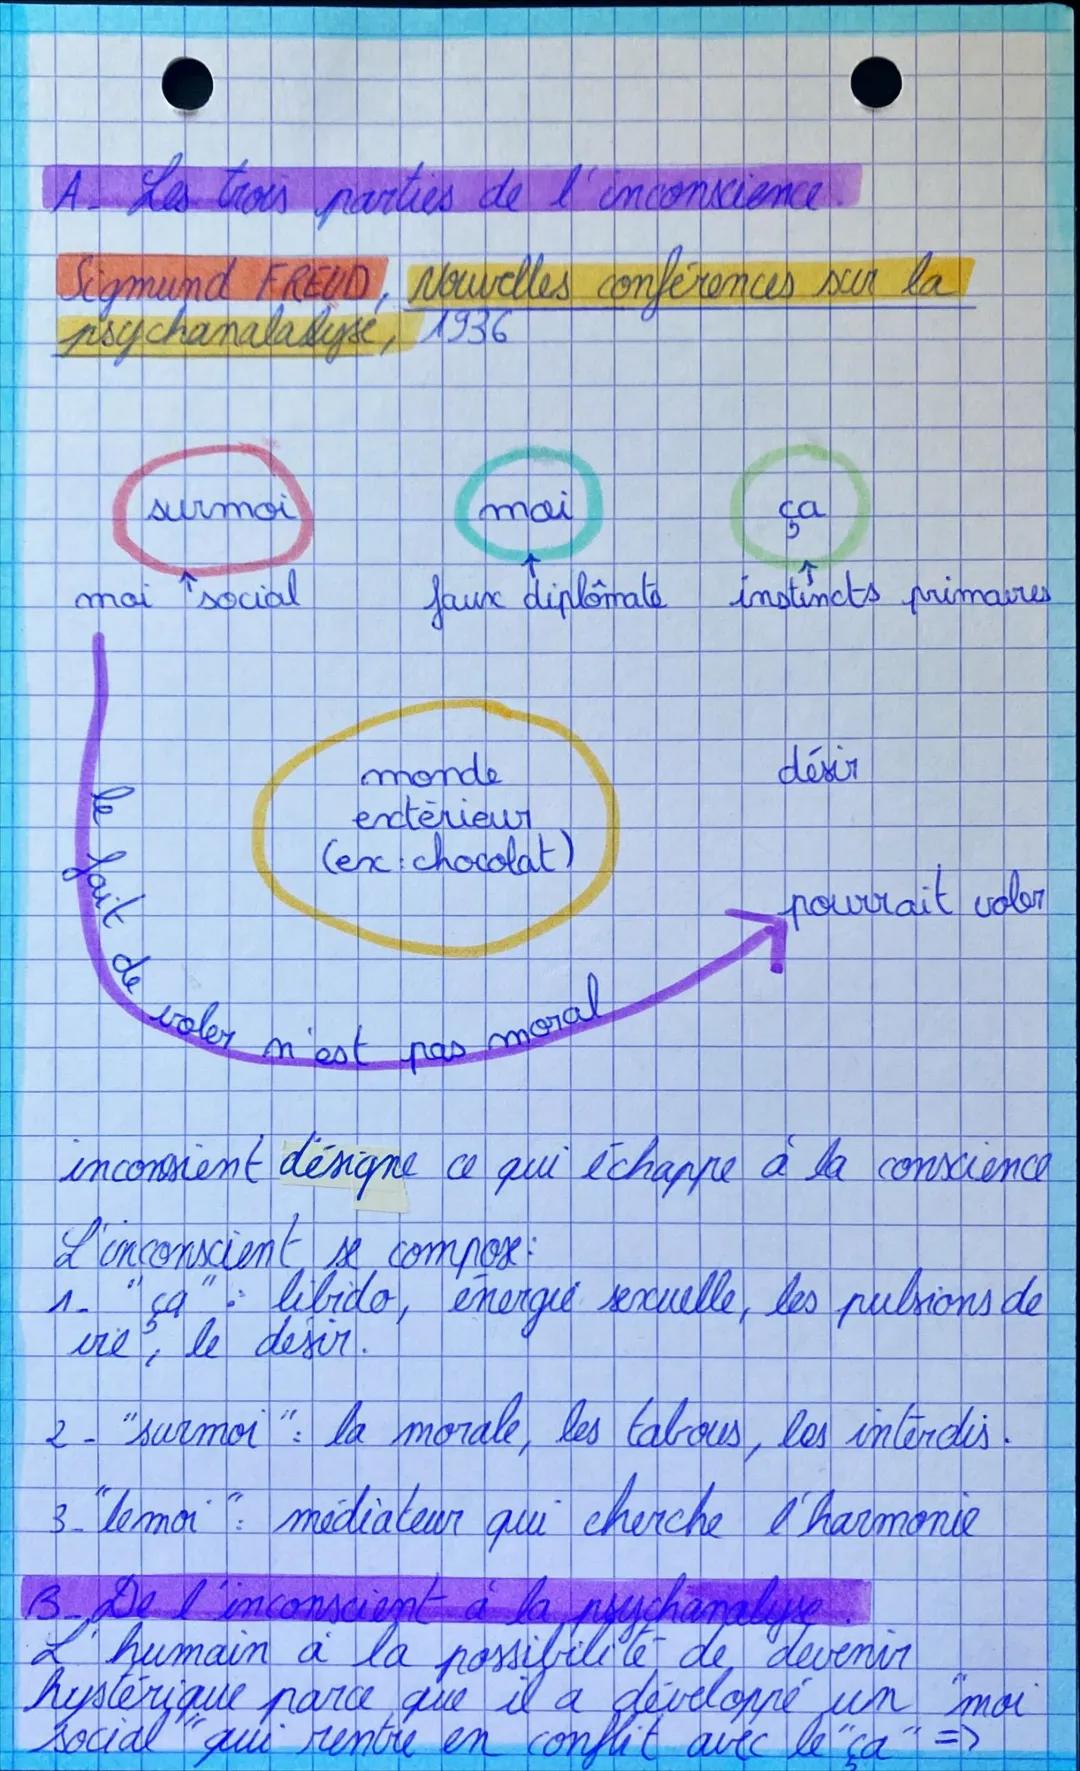 A- Les trois parties de l'inconscience.
Sigmund FREUD, Nouvelles conférences sur la
psychanalalyse, 1936
surmoi moi ça
moi social faux diplômate instincts primaires
monde
extèrieur
(ex: chocolat)
désir
pourrait voler
le fait de voler n'est pas moral
inconsient désigne ce qui échappe à la conscience
L'inconscient se compose:
1- "ça": libido, énergie sexuelle, les pulsions de
vie, le désir.
2- "surmoi": la morale, les tabous, les interdis.
3- "le moi": médiateur qui cherche l'harmonie
B- De l'inconscient à la psychanalyse.
L'humain à la possibilité de devenir
hystérique parce que il a développé un "moi
social" qui rentre en conflit avec le "ça" =>